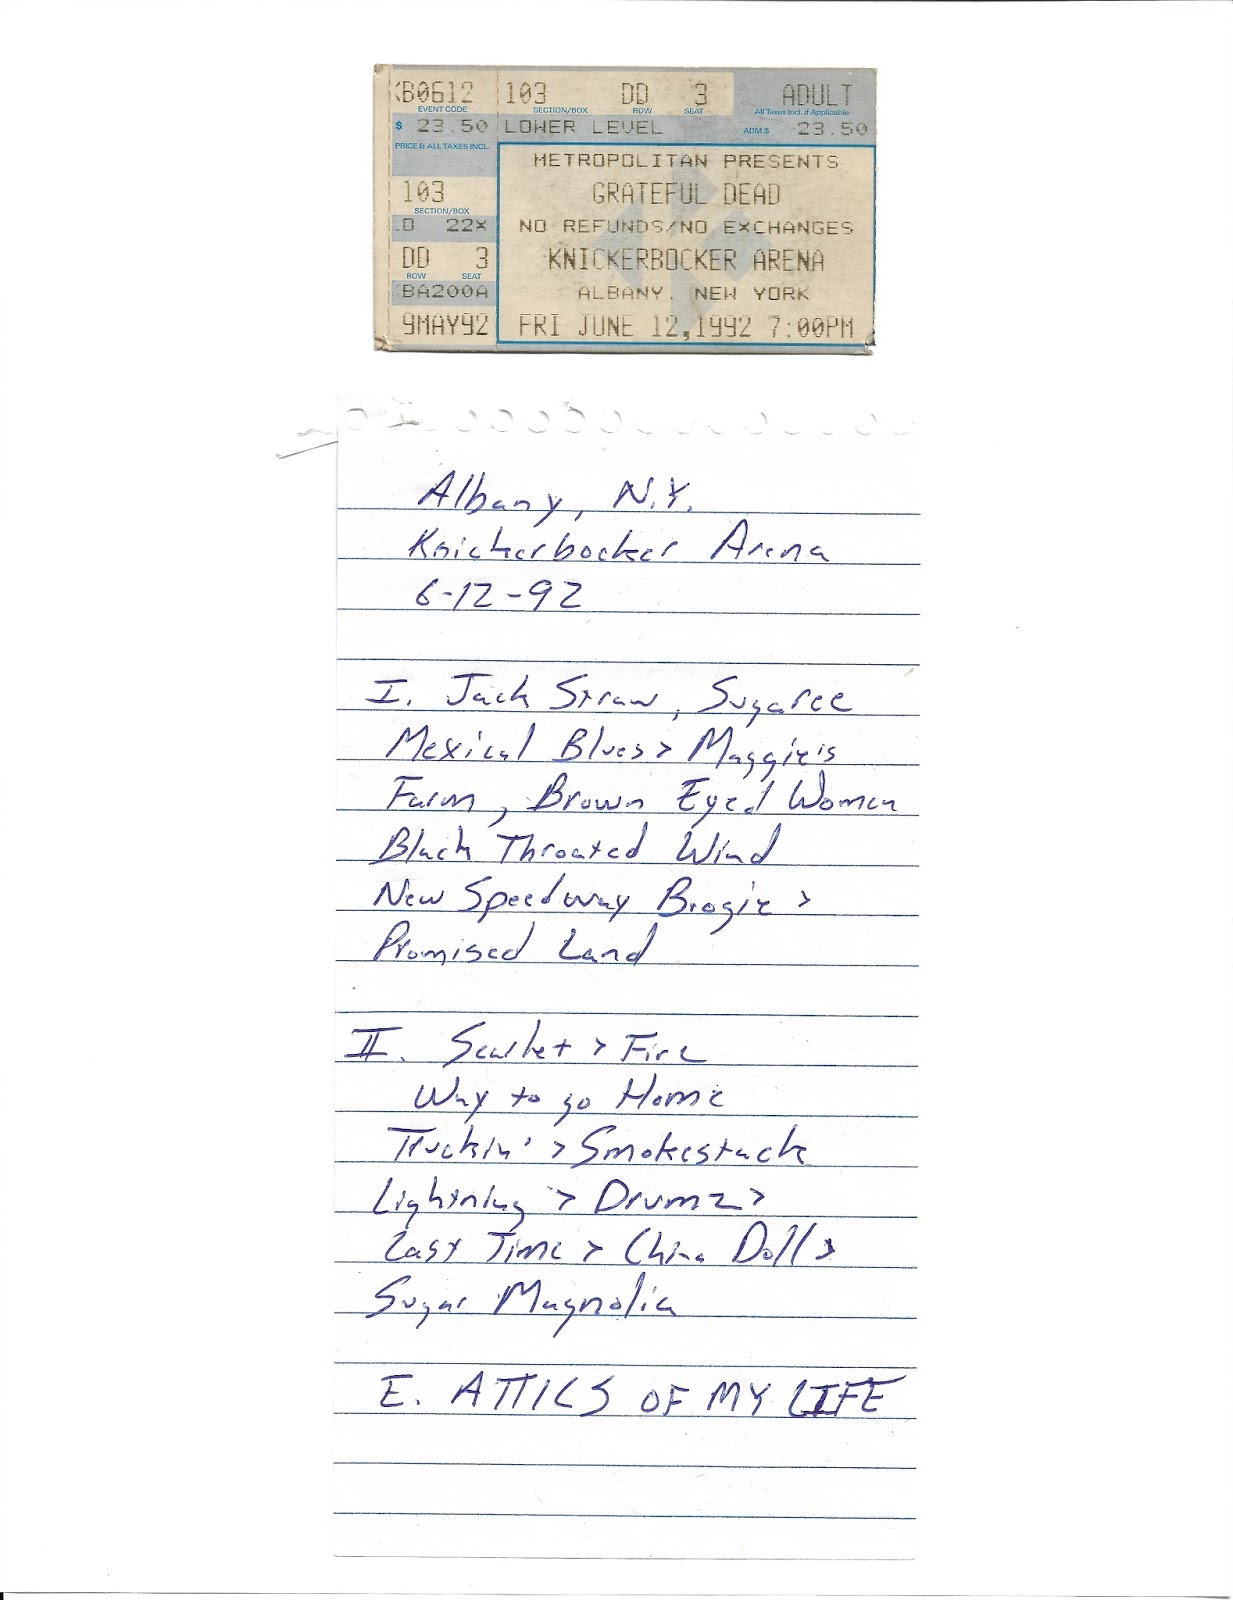 KB0612 103 DD 3 ADULT
EVENT CODE SECTION/BOX ROW SEAT All Taxes Incl. if Applicable
$ 23.50 LOWER LEVEL ADM.$ 23.50
PRICE & ALL TAXES INCL.
METROPOLITAN PRESENTS
103 GRATEFUL DEAD
SECTION/BOX
22X NO REFUNDS/NO EXCHANGES
DD 3 KNICKERBOCKER ARENA
ROW SEAT
BA200A ALBANY, NEW YORK
9MAY92 FRI JUNE 12,1992 7:00PM
Albany, N.Y.
Knickerbocker Arena
6-12-92
I. Jack Straw, Sugaree
Mexical Blues > Maggie's
Farm, Brown Eyed Women
Black Throated Wind
New Speedway Boogie >
Promised Land
II. Scarlet > Fire
Way to go Home
Truckin' > Smokestack
Lightning > Drumz >
Last Time > China Doll >
Sugar Magnolia
E. ATTICS OF MY LIFE